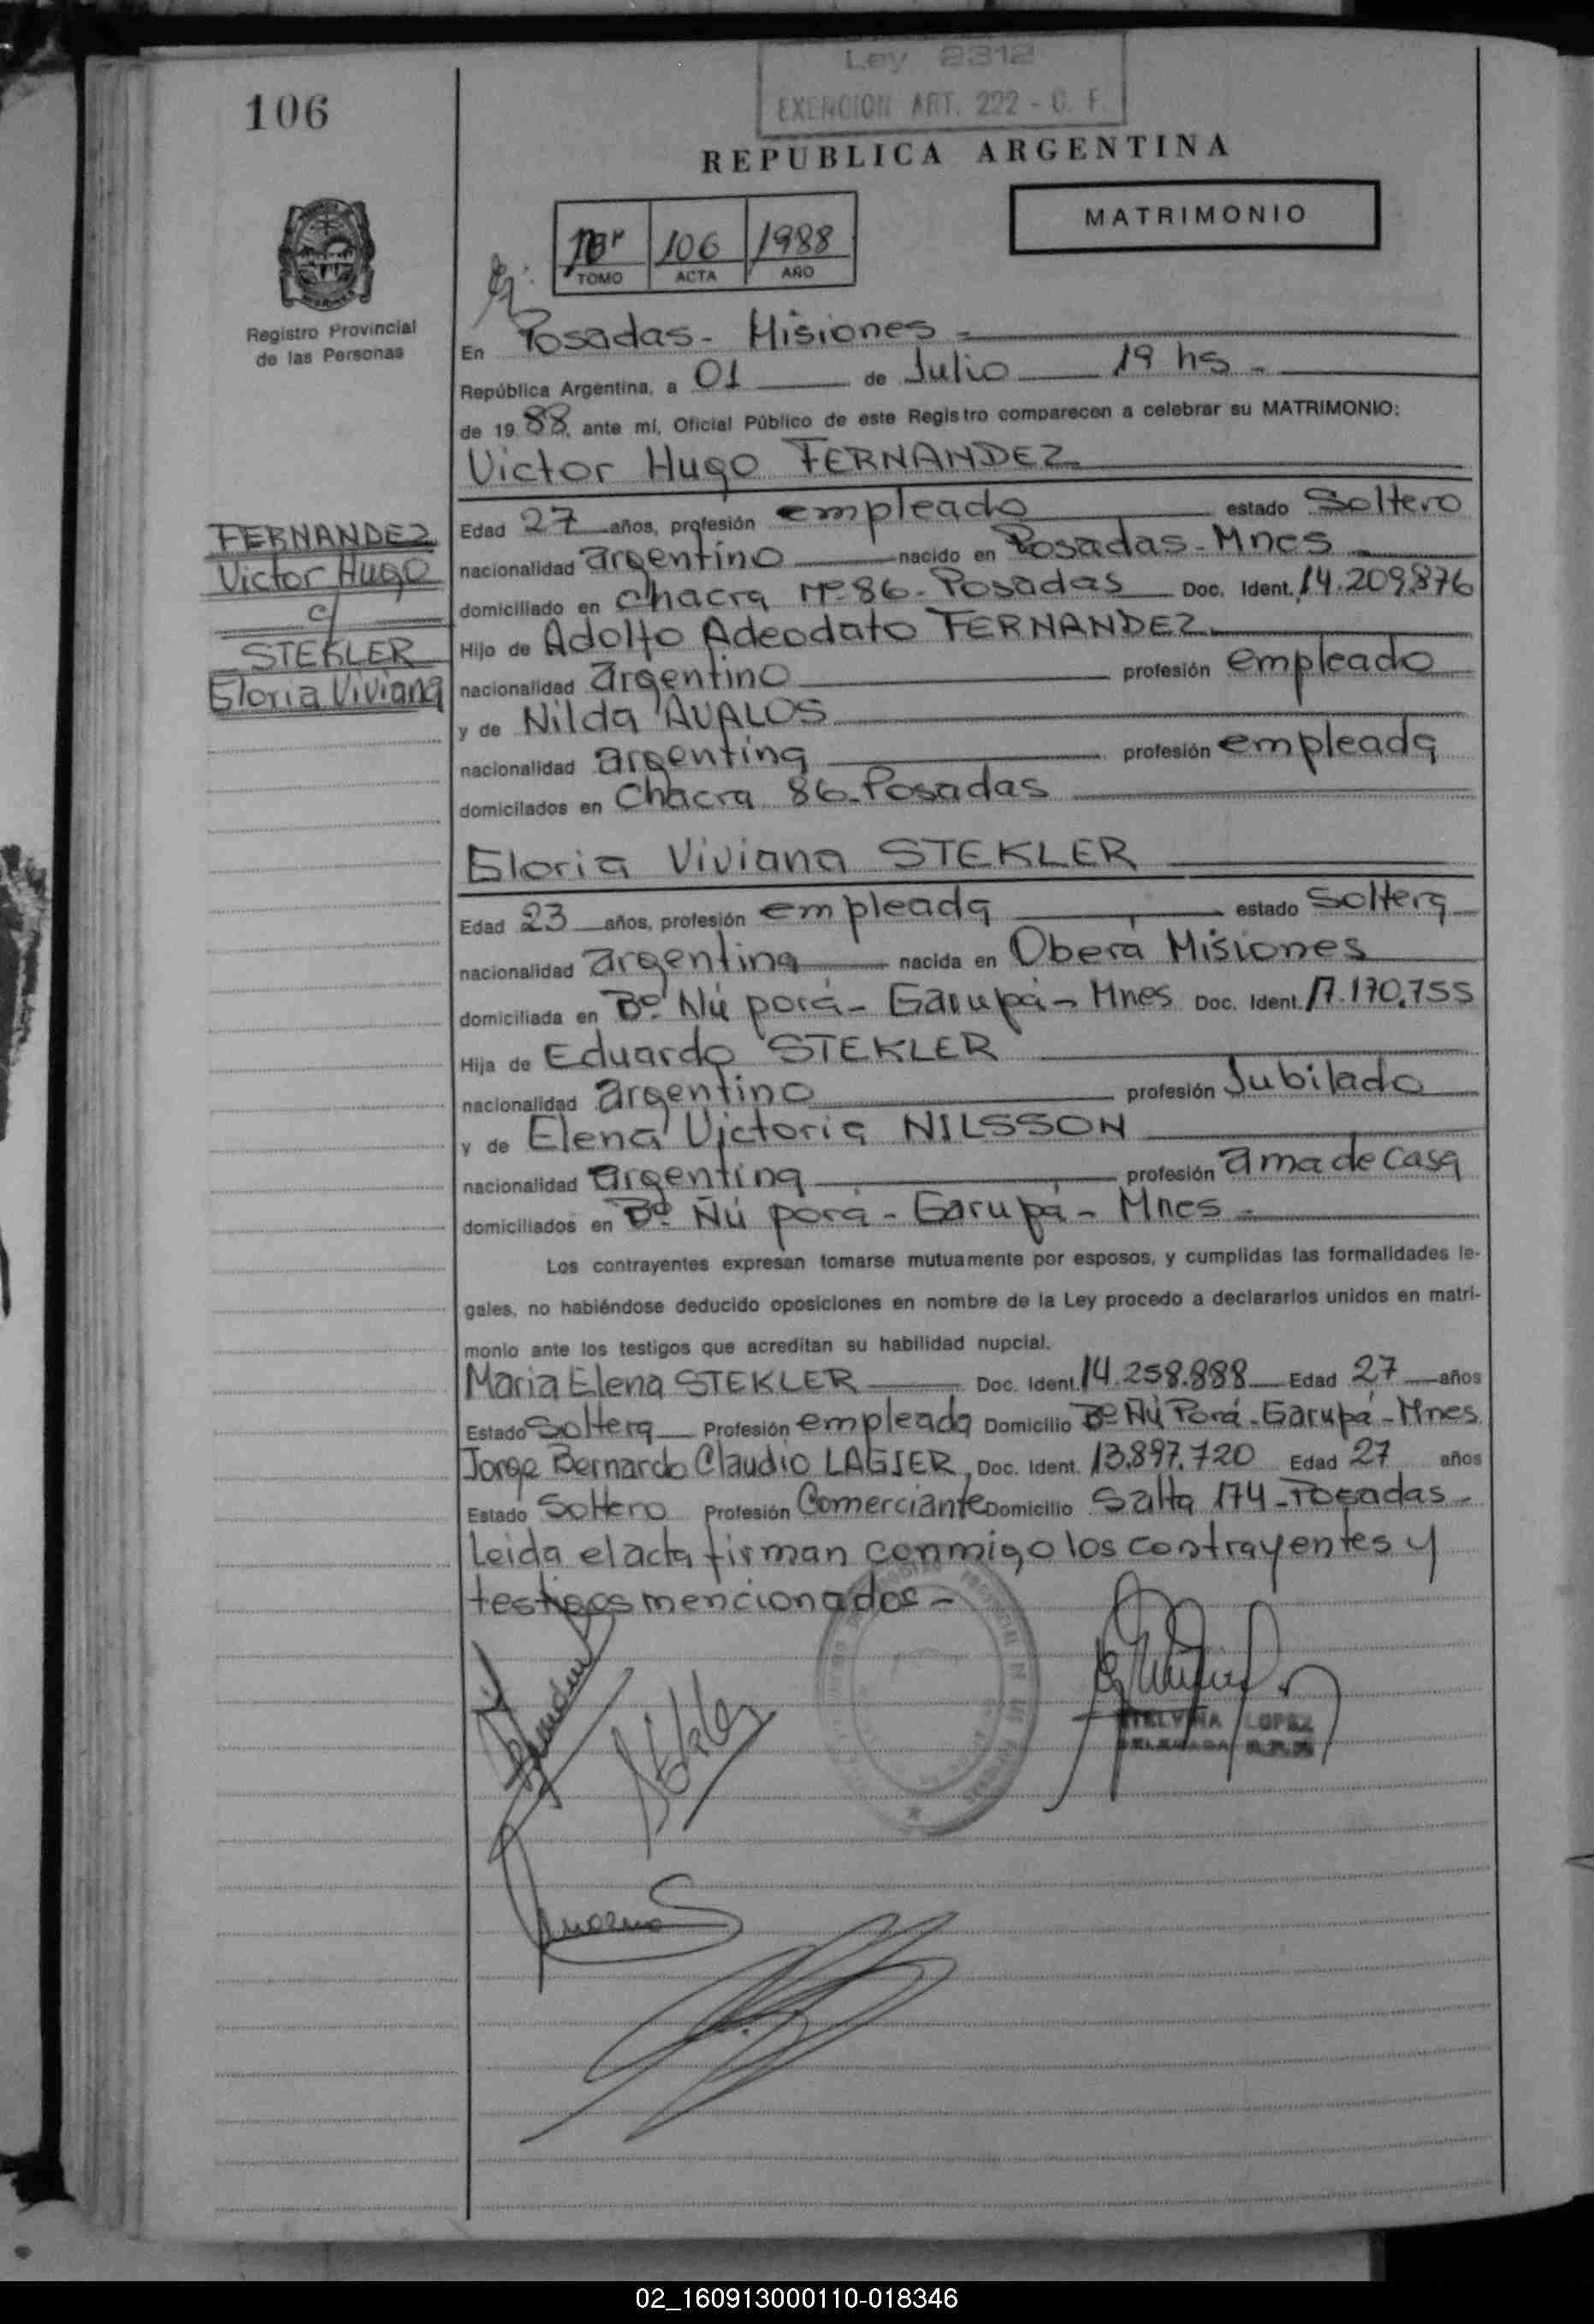 Ley 2312
EXENCION ART. 222 - C. F.
106
REPUBLICA ARGENTINA
MATRIMONIO
106 1988
TOMO ACTA AÑO
Registro Provincial
de las Personas
En Posadas - Misiones
República Argentina, a 01 de Julio 19 hs -
de 19 88, ante mí, Oficial Público de este Registro comparecen a celebrar su MATRIMONIO:
Victor Hugo FERNANDEZ
FERNANDEZ
Victor Hugo
c/
STEKLER
Gloria Viviana
Edad 27 años, profesión empleado estado Soltero
nacionalidad argentino nacido en Posadas - Mnes
domiciliado en Chacra Nº 86 - Posadas Doc. Ident. 14.209.876
Hijo de Adolfo Adeodato FERNANDEZ
nacionalidad argentino profesión empleado
y de Nilda AVALOS
nacionalidad argentina profesión empleada
domicilados en Chacra 86 - Posadas
Gloria Viviana STEKLER
Edad 23 años, profesión empleada estado Soltera
nacionalidad argentina nacida en Oberá Misiones
domiciliada en Bº Ñú porá - Garupá - Mnes Doc. Ident. 17.170.755
Hija de Eduardo STEKLER
nacionalidad argentino profesión Jubilado
y de Elena Victoria NILSSON
nacionalidad argentina profesión ama de casa
domiciliados en Bº Ñú porá - Garupá - Mnes -
Los contrayentes expresan tomarse mutuamente por esposos, y cumplidas las formalidades le-
gales, no habiéndose deducido oposiciones en nombre de la Ley procedo a declararlos unidos en matri-
monio ante los testigos que acreditan su habilidad nupcial.
Maria Elena STEKLER Doc. Ident. 14.258.888 Edad 27 años
Estado Soltera Profesión empleada Domicilio Bº Ñú Porá - Garupá - Mnes
Jorge Bernardo Claudio LAGIER, Doc. Ident. 13.897.720 Edad 27 años
Estado Soltero Profesión Comerciante Domicilio Salta 174 - Posadas -
Leida el acta firman conmigo los contrayentes y
testigos mencionados -
Stekler
LOPEZ
02_160913000110-018346